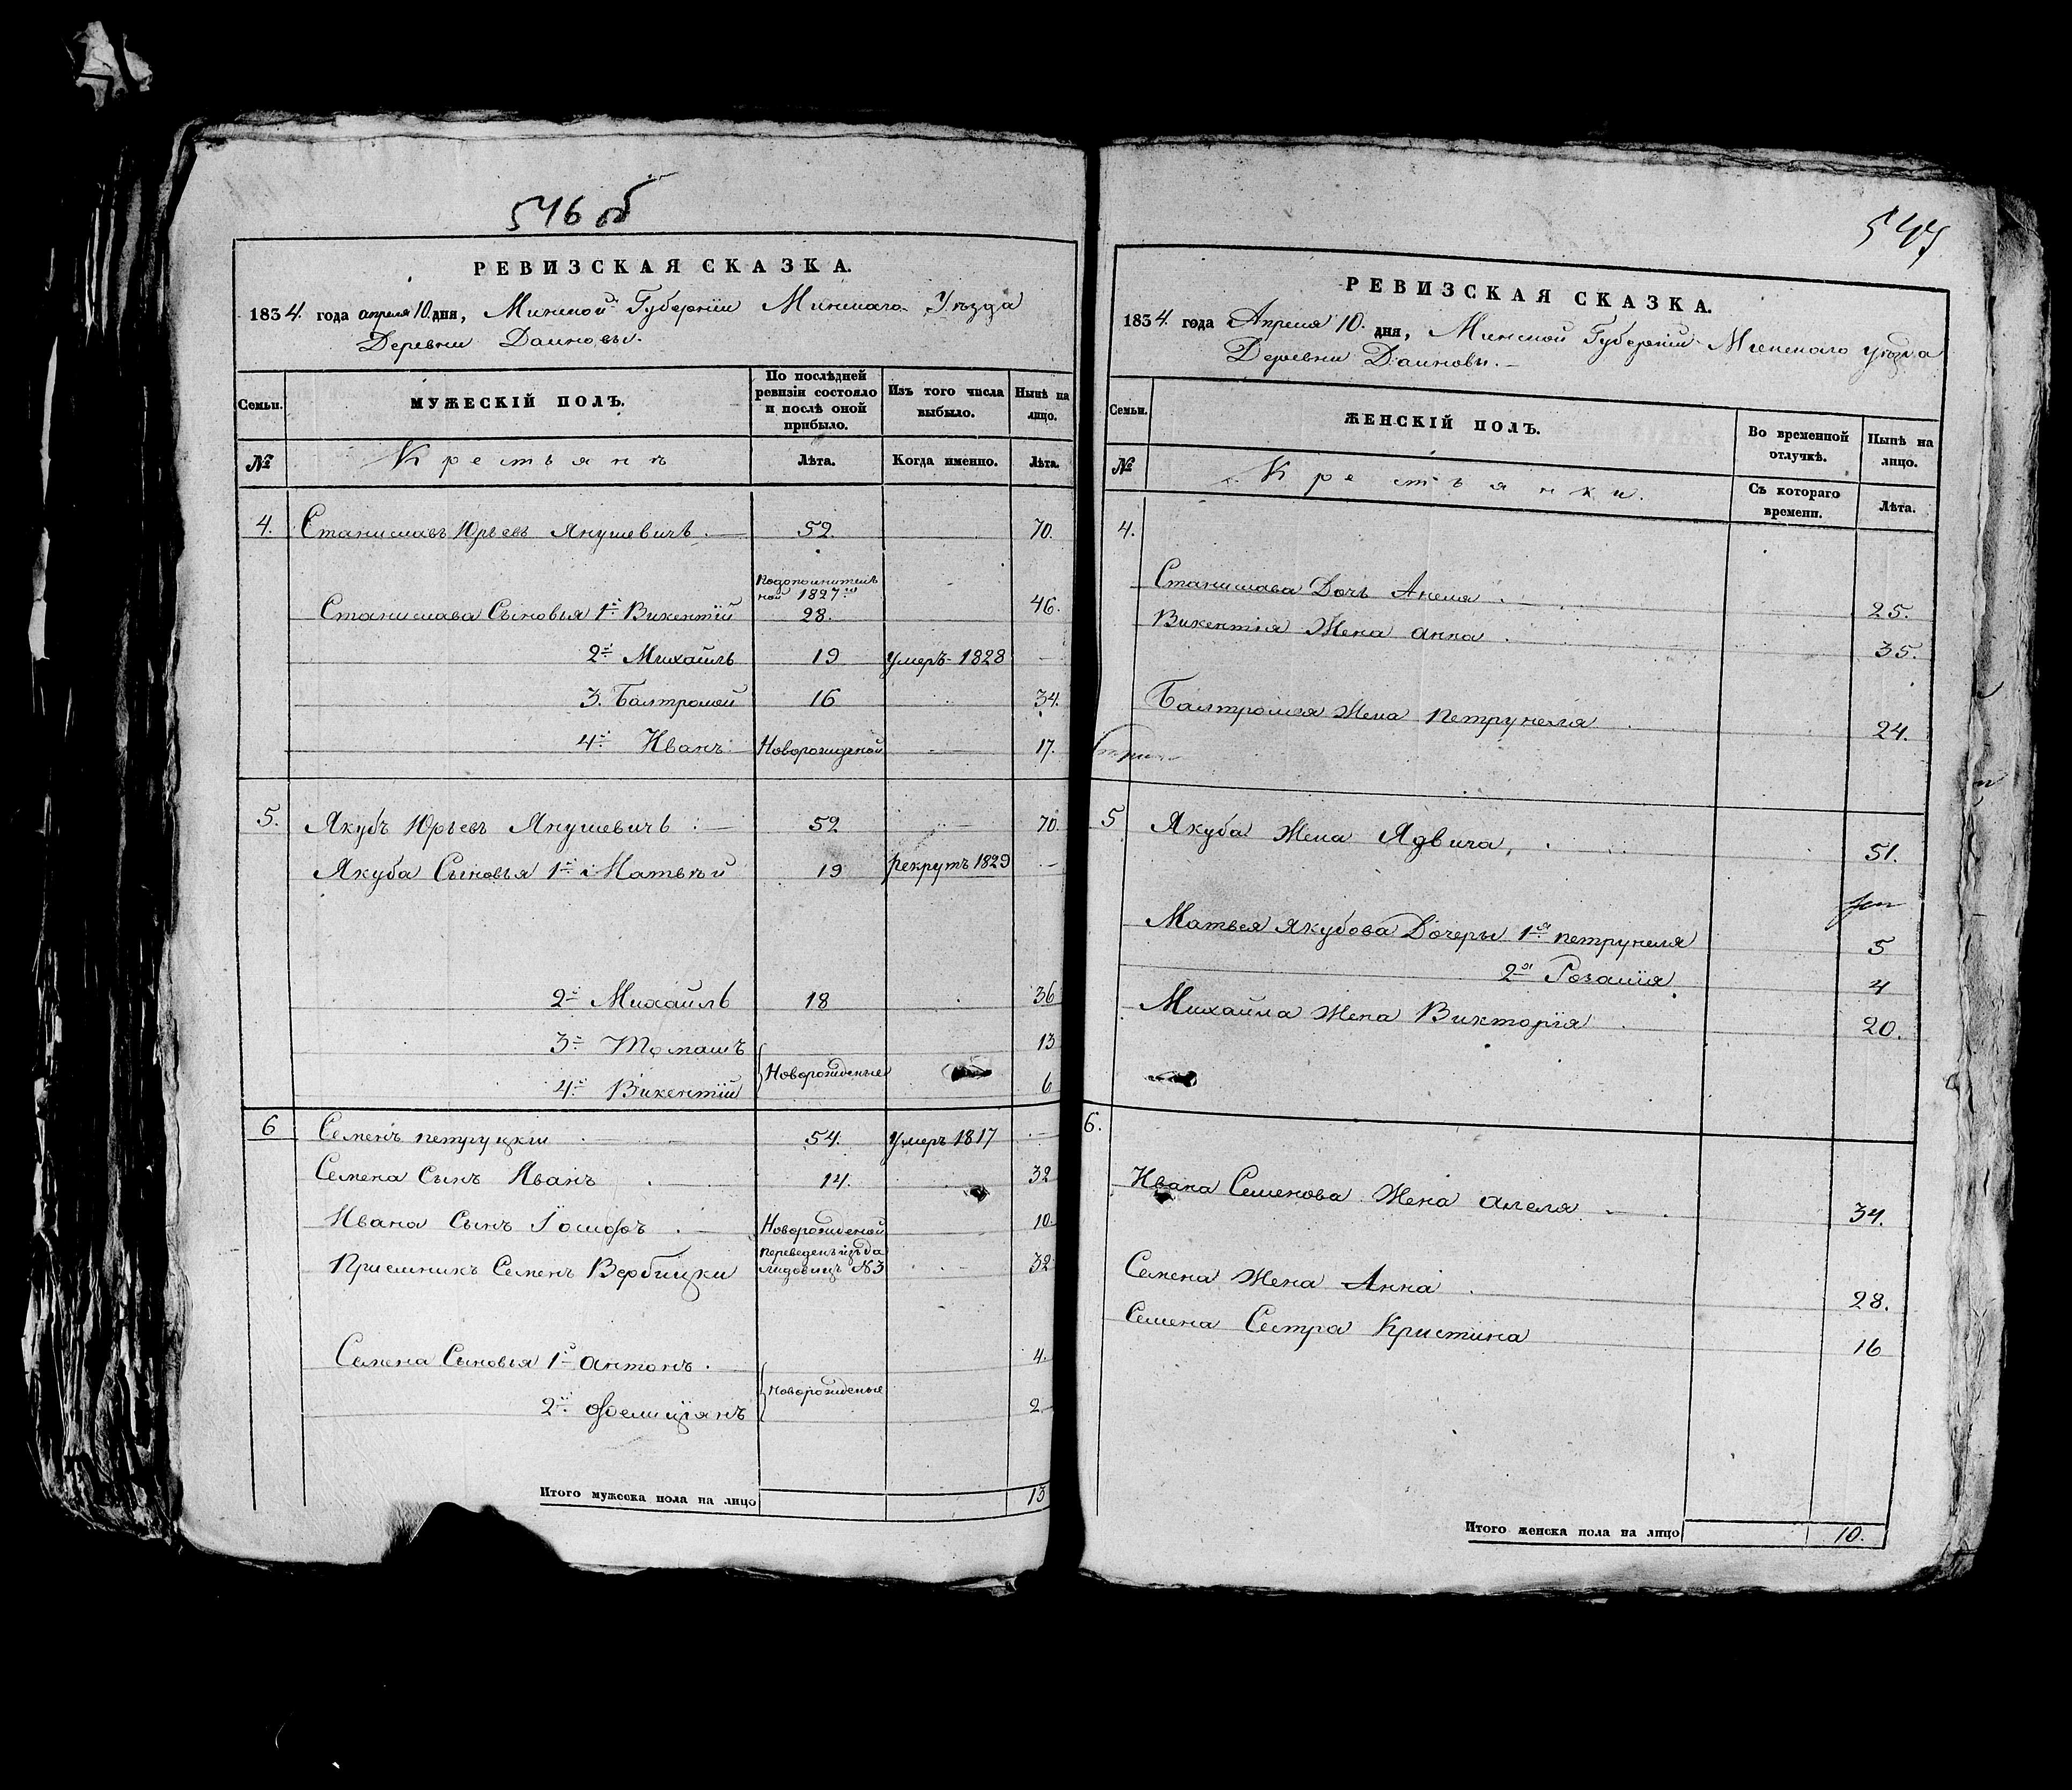 546 об
РЕВИЗСКАЯ СКАЗКА.
1834. года апреля 10. дня, Минской Губернїи Минскаго Уѣзда
Деревни Даиновы.
Семьи.
МУЖЕСКІЙ ПОЛЪ.
По послѣдней ревизіи состояло и послѣ оной прибыло.
Изъ того числа выбыло.
Нынѣ на лицо.
№
Крестьянъ
Лѣта.
Когда именно.
Лѣта.
4. Станиславъ Юрьевъ Янушевичъ. 52. 70.
Подополнительной 1827го
Станислава Сыновья 1й Викентїй 28. 46.
2й Михайлъ 19 умеръ 1828
3. Балтромей 16 34.
4й Иванъ Новорожденой 17.
5. Якубъ Юрьевъ Янушевичъ 52 70.
Якуба Сыновья 1й Матвѣй 19 рекрутъ 1829
2й Михаилъ 18 36
3й Томашъ 13
Новорожденые
4й Викентїй 6
6 Семенъ петруцкїи 54. умеръ 1817
Семена Сынъ Иванъ 14. 32
Ивана Сынъ Іосифъ Новорожденой 10.
Приемникъ Семенъ Вербицки переведенъ изъ да лидовичъ №3 32
Семена Сыновья 1й антонъ. 4.
Новорожденые
2й Фелицїянъ 2
Итого мужеска пола на лицо 13
547
РЕВИЗСКАЯ СКАЗКА.
1834. года Апреля 10. дня, Минской Губернїй Минскаго уѣзда
Деревни Даиновы.
Семьи.
ЖЕНСКІЙ ПОЛЪ.
Во временной отлучкѣ.
Нынѣ на лицо.
№
Крестьянки.
Съ котораго времени.
Лѣта.
4.
Станислава Дочь Анеля 25.
Викентїя Жена анна 35.
Балтромея Жена петрунеля 24.
5 Якуба Жена Ядвича, 51.
Матвея якубова Дочеры 1я петрунеля 5
2я Розалїя 4
Михайла Жена Викторїя 20.
6.
Ивана Семенова Жена анеля 34.
Семена Жена Анна 28.
Семена Сестра Кристина 16
Итого женска пола на лицо 10.